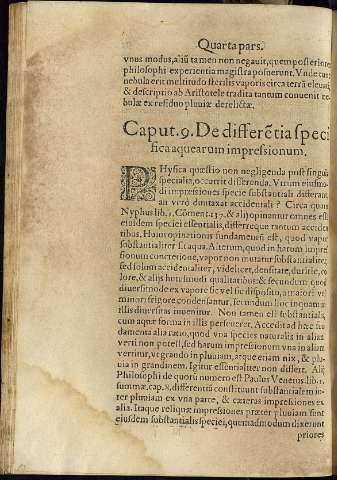 Quarta pars.
vnus modus, aliũ tamen non negauit, quem posteriores
philosophi experientia magistra posuerunt. Vnde
nebula erit multitudo sterilis vaporis circa terrã eleuati,
& descriptio ab Aristotele tradita tantum conuenit ne-
bulæ ex residuo pluuiæ derelictæ.
Caput. 9. De differẽtia speci
fica aquearum impressionum.
PHysica quæstio non negligenda post singula
specialia, occurrit disserenda. Vtrum eiusmo-
di impressiones specie substantiali differant
an verò duntaxat accidentali? Circa quam
Nyphus lib. 1. Cõment. 137. & alij opinantur omnes esse
eiusdem speciei essentialis, differreque tantum acciden-
tibus. Horum opinationis fundamentũ est, quod vapor
substantialiter sit aqua. Alterum, quod in harum impres-
sionum concretione, vapor non mutatur substantialiter,
sed solum accidentaliter, videlicet, densitate, duritie, co-
lore, & alijs huiusmodi qualitatibus: & secundum quod
diuersimode ex vapore sic vel sic disposito, a maiori vel
minori frigore condensantur, secundum hoc in quam ab
illis diuersitas inuenitur. Non tamen est substantialis,
cum aquæ forma in illis perseueret. Accedit ad hæc fun-
damenta alia ratio, quod vna species naturalis in aliam
verti non potest, sed harum impressionum vna in aliam
vertitur, vt grando in pluuiam, atque etiam nix, & plu-
uia in grandinem. Igitur essentialiter non differũt. Alij
Philosophi de quorũ numero est Paulus Venetus lib. 1.
summæ, cap. 8. differentiã constituunt substantialem in-
ter pluuiam ex vna parte, & cæteras impressiones ex
alia. Itaque reliquæ impressiones præter pluuiam sunt
eiusdem substantialis speciei, quemadmodum dixerunt
priores